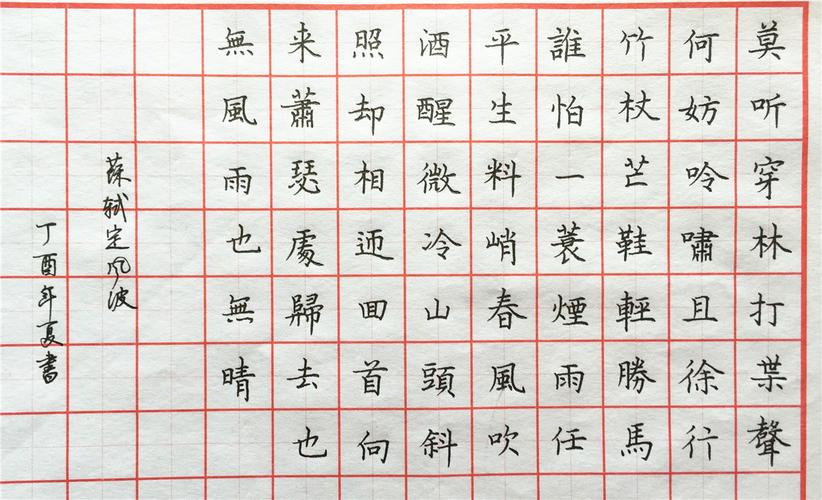 莫听穿林打葉聲
何妨吟嘯且徐行
竹杖芒鞋輕勝馬
誰怕一蓑煙雨任
平生料峭春風吹
酒醒微冷山頭斜
照却相迎回首向
来蕭瑟處歸去也
無風雨也無晴
蘇軾定风波
丁酉年夏書